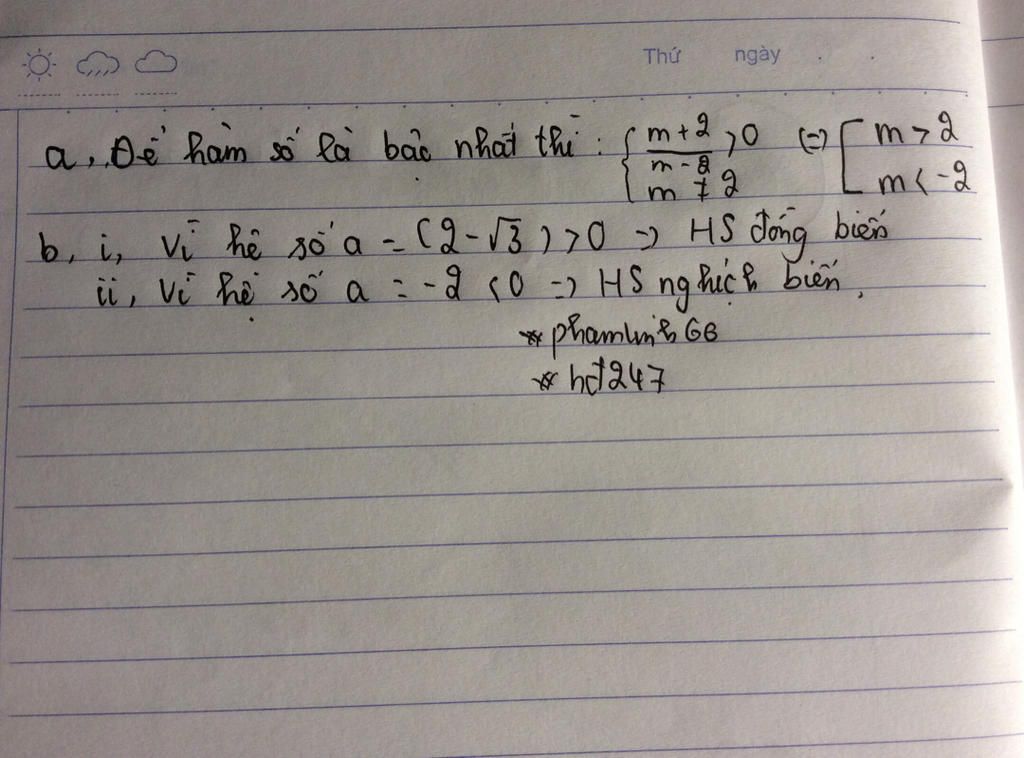 Thứ ngày . .
a, Để hàm số là bậc nhất thì : { (m + 2)/(m - 2) > 0 (=) [ m > 2
m ≠ 2 m < -2
b, i, Vì hệ số a = (2 - √3) > 0 => HS đồng biến
ii, Vì hệ số a = -2 < 0 => HS nghịch biến.
* phamlinh GB
* hđ247